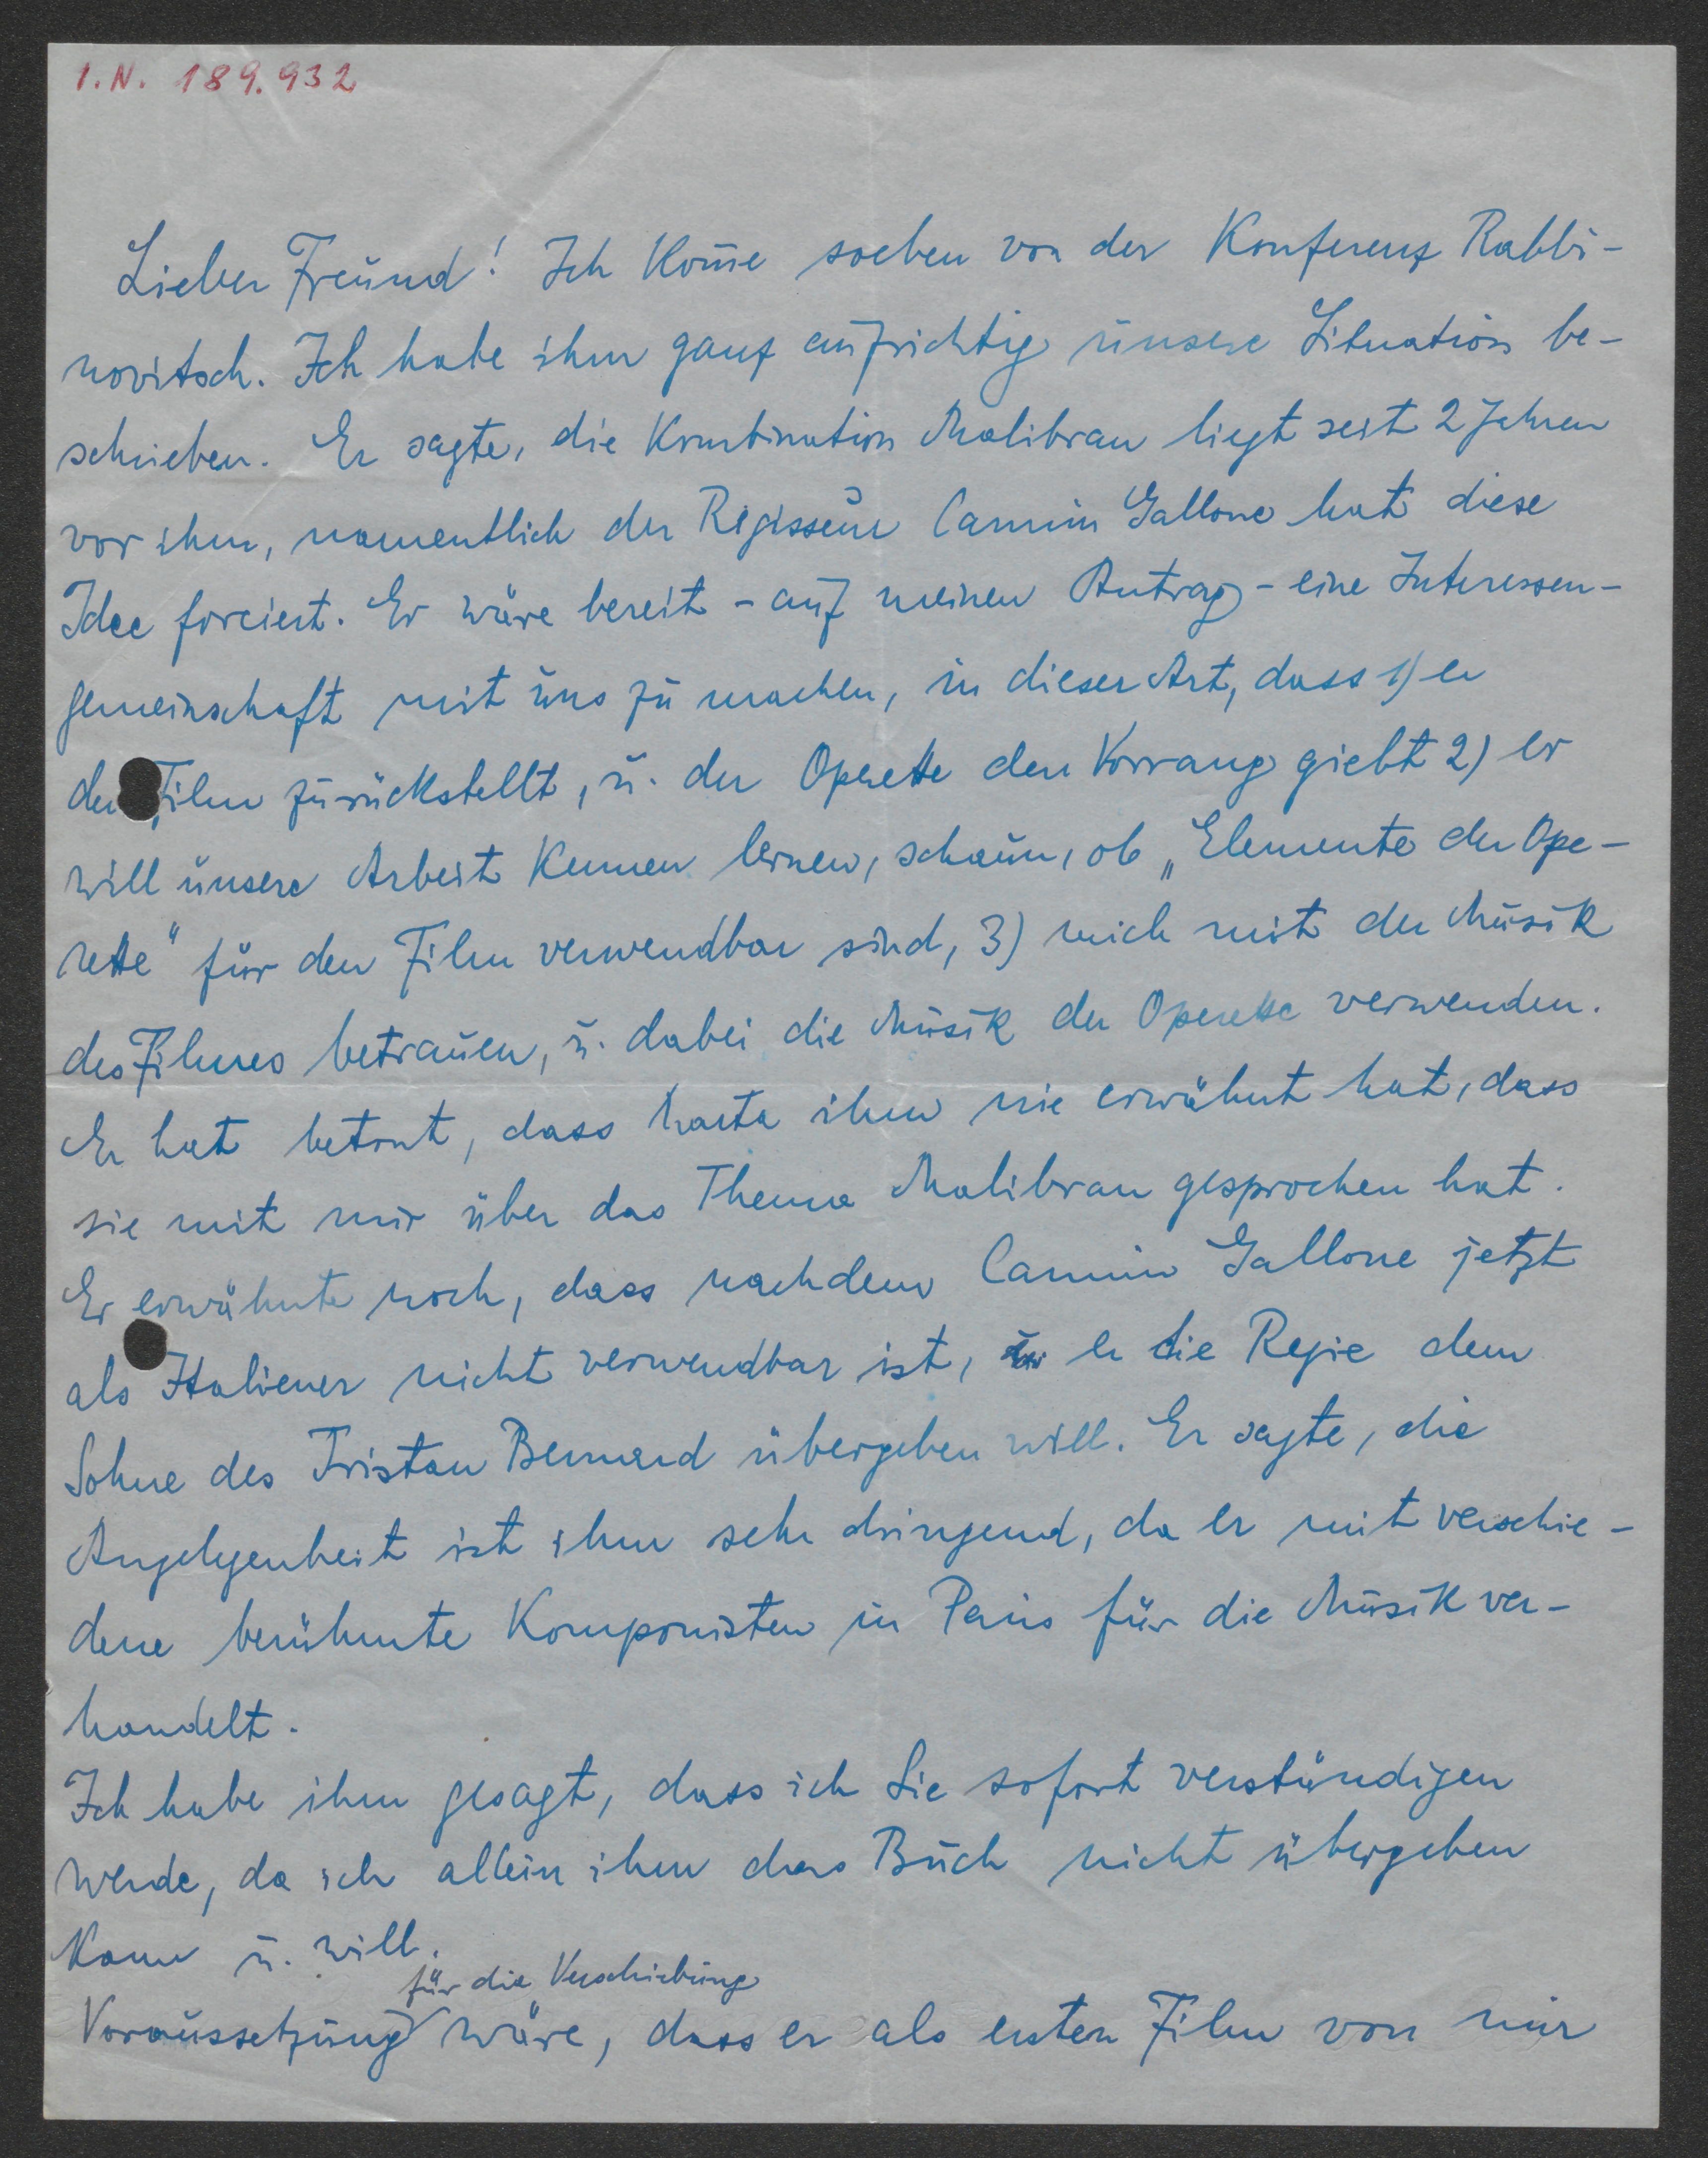 I.N. 189.932
Lieber Freund! Ich kom̄e soeben von der Konferenz Rabbi-
novitsch. Ich habe ihm ganz aufrichtig unsere Situation be-
schrieben. Er sagte, die Kombination Malibran liegt seit 2 Jahren
vor ihm, namentlich der Regisseur Carmin Gallone hat diese
Idee forciert. Er wäre bereit - auf meinen Antrag - eine Interessen-
gemeinschaft mit uns zu machen, in dieser Art, dass 1) er
den Film zurückstellt, u. der Operette den Vorrang giebt 2) er
will unsere Arbeit kennen lernen, schaun, ob „Elemente der Ope-
rette" für den Film verwendbar sind, 3) mich mit der Musik
des Filmes betrauen, u. dabei die Musik der Operette verwenden.
Er hat betont, dass Marta ihm nie erwähnt hat, dass
sie mit mir über das Thema Malibran gesprochen hat.
Er erwähnte noch, dass nachdem Carmin Gallone jetzt
als Italiener nicht verwendbar ist, er die Regie dem
Sohne des Tristan Bernard übergeben will. Er sagte, die
Angelegenheit ist ihm sehr dringend, da er mit verschie-
dene berühmte Komponisten in Paris für die Musik ver-
handelt.
Ich habe ihm gesagt, dass ich Sie sofort verständigen
werde, da ich allein ihm das Buch nicht übergeben
kann u. will.
für die Verschiebung
Voraussetzung wäre, dass er als ersten Film von mir